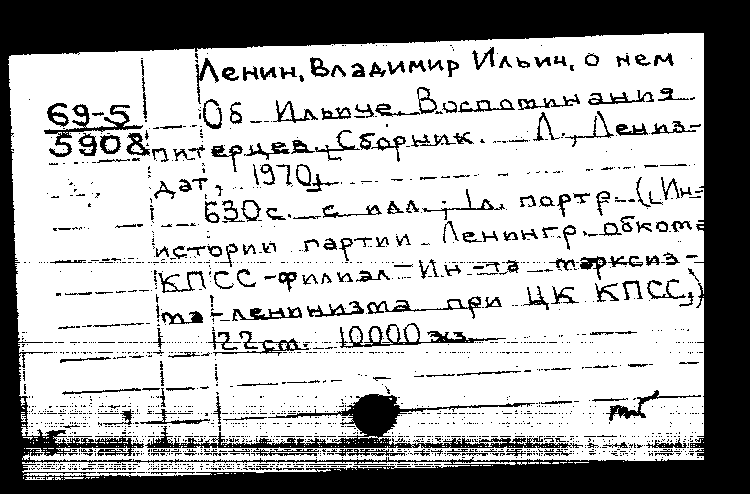 Ленин, Владимир Ильич, о нем
69-5
5908
Об Ильиче. Воспоминания
питерцев. [Сборник. Л., Лениз-
дат, 1970].
630 с. с илл.; 1 л. портр. ([Ин-
истории партии Ленингр. обкома
КПСС-филиал Ин-та марксиз-
ма-ленинизма при ЦК КПСС])
22 см. 10000 экз.